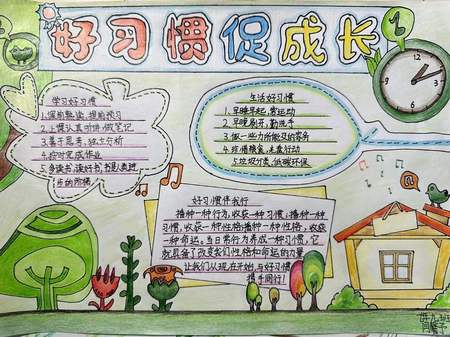 好习惯促成长
学习好习惯
1.课前熟读,提前预习
2.上课认真听讲,做笔记
3.善于思考,独立分析
4.按时完成作业
5.多读书,读好书,书是人类进
步的阶梯
生活好习惯
1.早睡早起,常运动
2.早晚刷牙,勤洗手
3.做一些力所能及的家务
4.珍惜粮食,光盘行动
5.垃圾分类,低碳环保
好习惯伴我行
播种一种行为,收获一种习惯;播种一种
习惯,收获一种性格;播种一种性格,收获
一种命运。当日常行为养成一种习惯,它
就具备了改变我们性格和命运的力量
让我们从现在开始,与好习惯
携手同行!